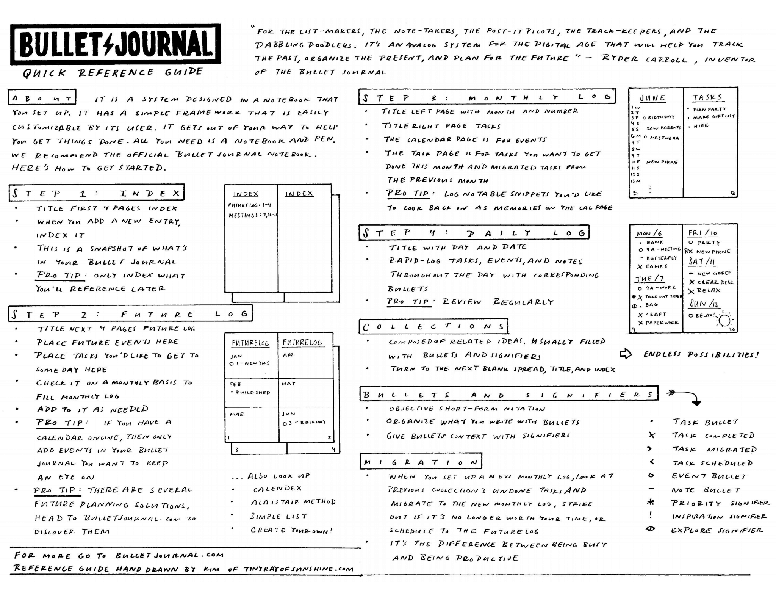 BULLET JOURNAL
QUICK REFERENCE GUIDE
"FOR THE LIST-MAKERS, THE NOTE-TAKERS, THE POST-IT PILOTS, THE TRACK-KEEPERS, AND THE
DABBLING DOODLERS. IT'S AN ANALOG SYSTEM FOR THE DIGITAL AGE THAT WILL HELP YOU TRACK
THE PAST, ORGANIZE THE PRESENT, AND PLAN FOR THE FUTURE" - RYDER CARROLL, INVENTOR
OF THE BULLET JOURNAL
ABOUT IT IS A SYSTEM DESIGNED IN A NOTEBOOK THAT
YOU SET UP. IT HAS A SIMPLE FRAMEWORK THAT IS EASILY
CUSTOMIZABLE BY ITS USER. IT GETS OUT OF YOUR WAY TO HELP
YOU GET THINGS DONE. ALL YOU NEED IS A NOTEBOOK AND PEN,
WE RECOMMEND THE OFFICIAL BULLET JOURNAL NOTEBOOK.
HERE'S HOW TO GET STARTED.
STEP 1: INDEX
• TITLE FIRST 4 PAGES INDEX
• WHEN YOU ADD A NEW ENTRY,
INDEX IT
• THIS IS A SNAPSHOT OF WHAT'S
IN YOUR BULLET JOURNAL
• PRO TIP: ONLY INDEX WHAT
YOU'LL REFERENCE LATER
INDEX
INDEX
STEP 2: FUTURE LOG
• TITLE NEXT 4 PAGES FUTURE LOG
• PLACE FUTURE EVENTS HERE
• PLACE TASKS YOU'D LIKE TO GET TO
SOMEDAY HERE
• CHECK IT ON A MONTHLY BASIS TO
FILL MONTHLY LOG
• ADD TO IT AS NEEDED
• PRO TIP: IF YOU HAVE A
CALENDAR ONLINE, THEN ONLY
ADD EVENTS IN YOUR BULLET
JOURNAL YOU WANT TO KEEP
AN EYE ON
• PRO TIP: THERE ARE SEVERAL
FUTURE PLANNING SOLUTIONS,
HEAD TO BULLETJOURNAL.COM TO
DISCOVER THEM
FUTURELOG
FUTURELOG
JAN
APR
FEB
MAY
MAR
JUN
... ALSO LOOK UP
• CALENDEX
• ALASTAIR METHOD
• SIMPLE LIST
• CREATE YOUR OWN!
FOR MORE GO TO BULLETJOURNAL.COM
REFERENCE GUIDE HAND DRAWN BY KIM OF TINYRAYOFSUNSHINE.COM
STEP 3: MONTHLY LOG
• TITLE LEFT PAGE WITH MONTH AND NUMBER
• TITLE RIGHT PAGE TASKS
• THE CALENDAR PAGE IS FOR EVENTS
• THE TASK PAGE IS FOR TASKS YOU WANT TO GET
DONE THIS MONTH AND MIGRATED TASKS FROM
THE PREVIOUS MONTH
• PRO TIP: LOG NOTABLE SNIPPETS YOU'D LIKE
TO LOOK BACK ON AS MEMORIES ON THE CAL PAGE
JUNE
TASKS
• PLAN PARTY
STEP 4: DAILY LOG
• TITLE WITH DAY AND DATE
• RAPID-LOG TASKS, EVENTS, AND NOTES
THROUGHOUT THE DAY WITH CORRESPONDING
BULLETS
• PRO TIP: REVIEW REGULARLY
MON/6
• BANK
TUE/7
FRI/10
O PARTY
SAT/11
X RELAX
SUN/12
COLLECTIONS
• COMPOSED OF RELATED IDEAS. USUALLY FILLED
WITH BULLETS AND SIGNIFIERS
• TURN TO THE NEXT BLANK SPREAD, TITLE, AND INDEX
ENDLESS POSSIBILITIES!
BULLETS AND SIGNIFIERS
• OBJECTIVE SHORT-FORM NOTATION
• ORGANIZE WHAT YOU WRITE WITH BULLETS
• GIVE BULLETS CONTEXT WITH SIGNIFIERS
• TASK BULLET
X TASK COMPLETED
> TASK MIGRATED
< TASK SCHEDULED
O EVENT BULLET
– NOTE BULLET
* PRIORITY SIGNIFIER
! INSPIRATION SIGNIFIER
EXPLORE SIGNIFIER
MIGRATION
• WHEN YOU SET UP A NEW MONTHLY LOG, LOOK AT
PREVIOUS COLLECTION'S UNDONE TASKS AND
MIGRATE TO THE NEW MONTHLY LOG, STRIKE
OUT IF IT'S NO LONGER WORTH YOUR TIME, OR
SCHEDULE TO THE FUTURE LOG
• IT'S THE DIFFERENCE BETWEEN BEING BUSY
AND BEING PRODUCTIVE